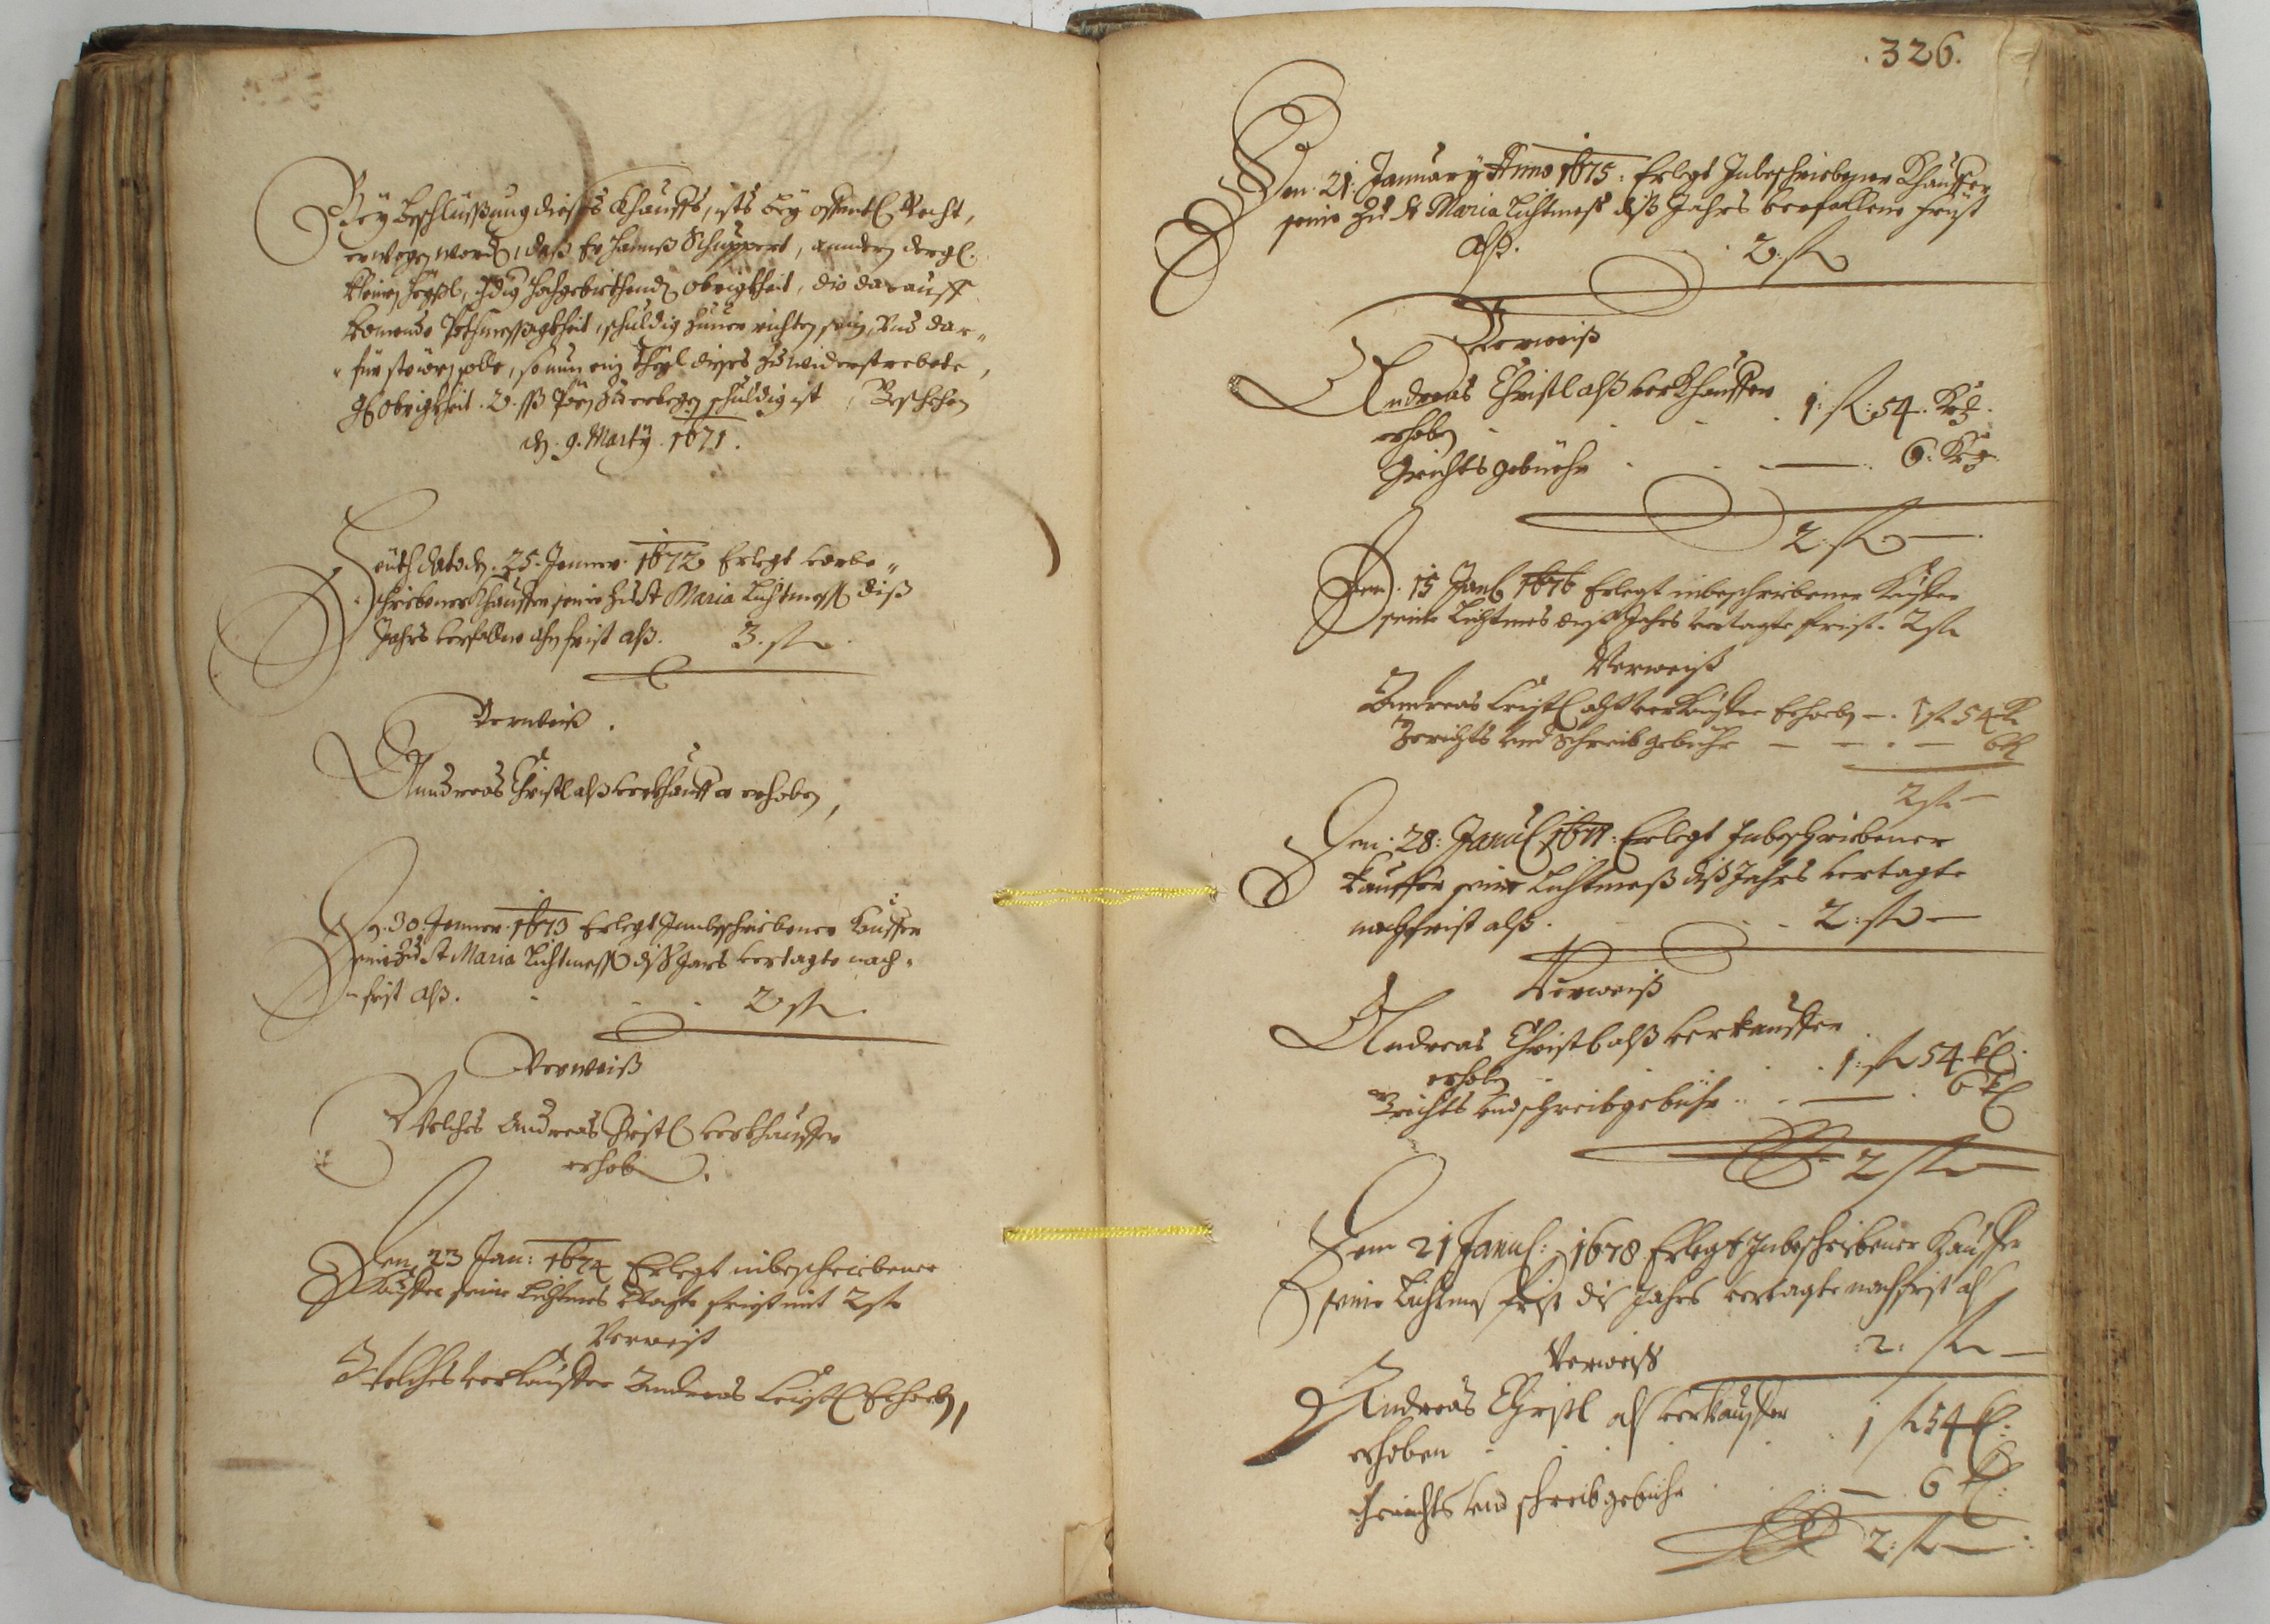 Beÿ beschlüssung dieses Khauffs, ists beÿ offentl Recht,
erwogen word, daß Er Hannß Schuppert, anndern dergl.
kleinen Hochgebiethend Obrigkheit, die darauff
komende schuldig zuuerrichten sein, Und dar„
„für soll, so nun ein theyl dieses zuwiderstrebete,
Obrigkheit. 2. ßß zuerlegen schuldig ist, Beschehen
den 9. Martÿ. 1671.
Heüth dato den. 25. Jenner. 1672 Erlegt vorbe„
„schriebener Khauffer seine zu St Maria Liechtmeß diß
Jahrs verfallene frist alß. 3. fl
Verweiß.
Anndreas Christl alß verkhauffer erhoben,
Den. 30. Jenner. 1673 Erlegt Innbeschriebener Kauffer
seine zu St Maria Liechtmeß diß Jars vertagte nach„
„frist alß. 2 fl
Verweiß
Welches Andreas Christl verkhauffer
erhoben.
Den 23 Jan: 1674 Erlegt inbeschriebener
Kauffer seine Lichtmes frist mit 2 fl
Verweiß
Welches verkauffer Andreas Cristl Erhoben,
.326.
Den. 21. Januarÿ Anno 1675: Erlegt Inbeschriebener Khauffer
seine zu St Maria Lichtmeß diß Jahrs verfallene frist
alß. 2. fl
Verweiß
Andreas Christl alß verkhauffer
erhoben 1. fl. 54. Krz.
Grichts gebüehr 6. Krz.
2. fl
Den. 15 Jan 1676 Erlegt inbeschriebener Kauffer
seine Lichtmes dises Jahrs vertagte frist. 2 fl
Verweiß
Andreas Cristl alß verkauffer Erhoben 1 fl 54 K
Gerichts und Schreib gebühr 6 K
2 fl
Den: 28: Janu 1677: Erlegt Inbeschriebener
kauffer seine Lichtmeß diß Jahrs vertagte
nachfrist alß. 2: fl
Verweiß
Andreas Christl alß verkauffer
erhoben 1: fl 54 k
Grichts und schreibgebühr 6 k
2 fl
Den 21 Janu: 1678 Erlegt Inbeschribener Kauffer
seine Lichtmes frist dis Jahrs vertagte nachfrist al
:2: fl
Verweiß
Andreas Christl als verkauffer
erhoben 1 fl 54 k:
Gerichts und schreib gebühr 6 k:
2: fl